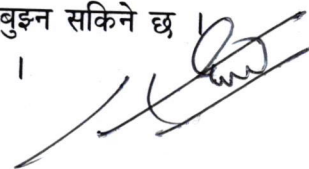 बुझ्न सकिने छ ।
।